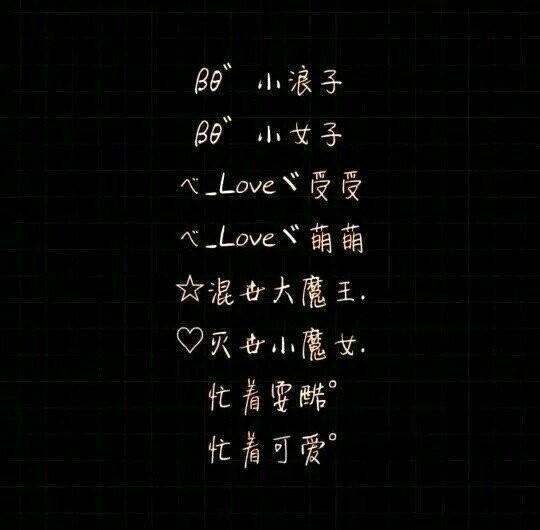 βθ゛ 小浪子
βθ゛ 小女子
ベ_Loveヾ受受
ベ_Loveヾ萌萌
☆混世大魔王.
♡灭世小魔女.
忙着耍酷°
忙着可爱°